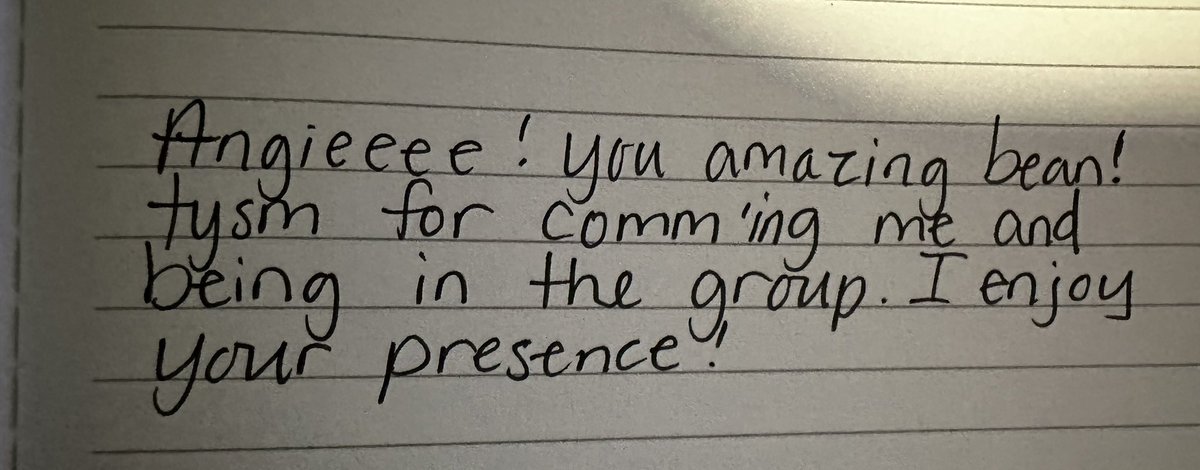 Angieeee! you amazing bean!
tysm for comm'ing me and
being in the group. I enjoy
your presence!